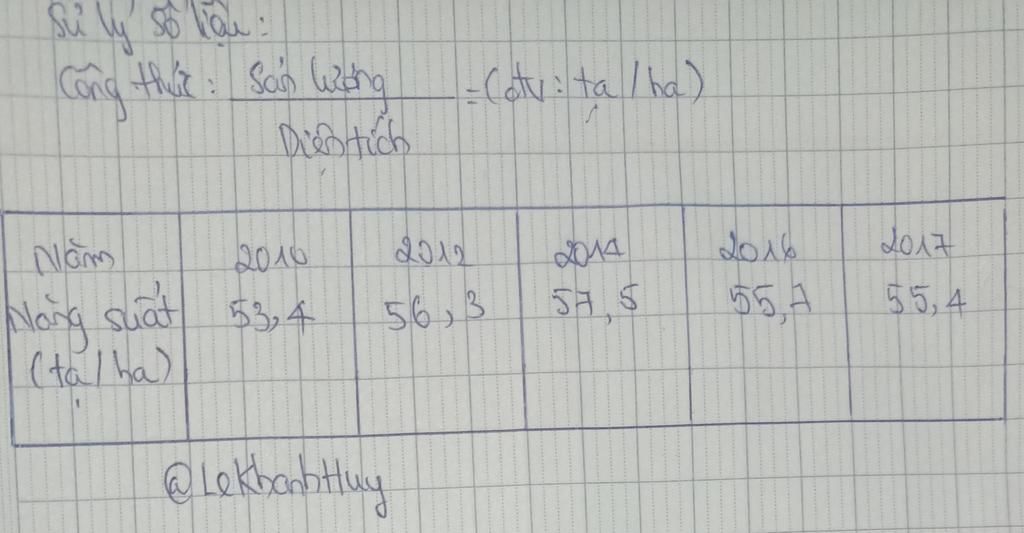 Sử lý số liệu:
Công thức: Sản lượng = (đtv: tạ/ha)
Diện tích
Năm 2010 2012 2014 2016 2017
Năng suất 53,4 56,3 57,5 55,7 55,4
(tạ/ha)
@LeKhanhHuy